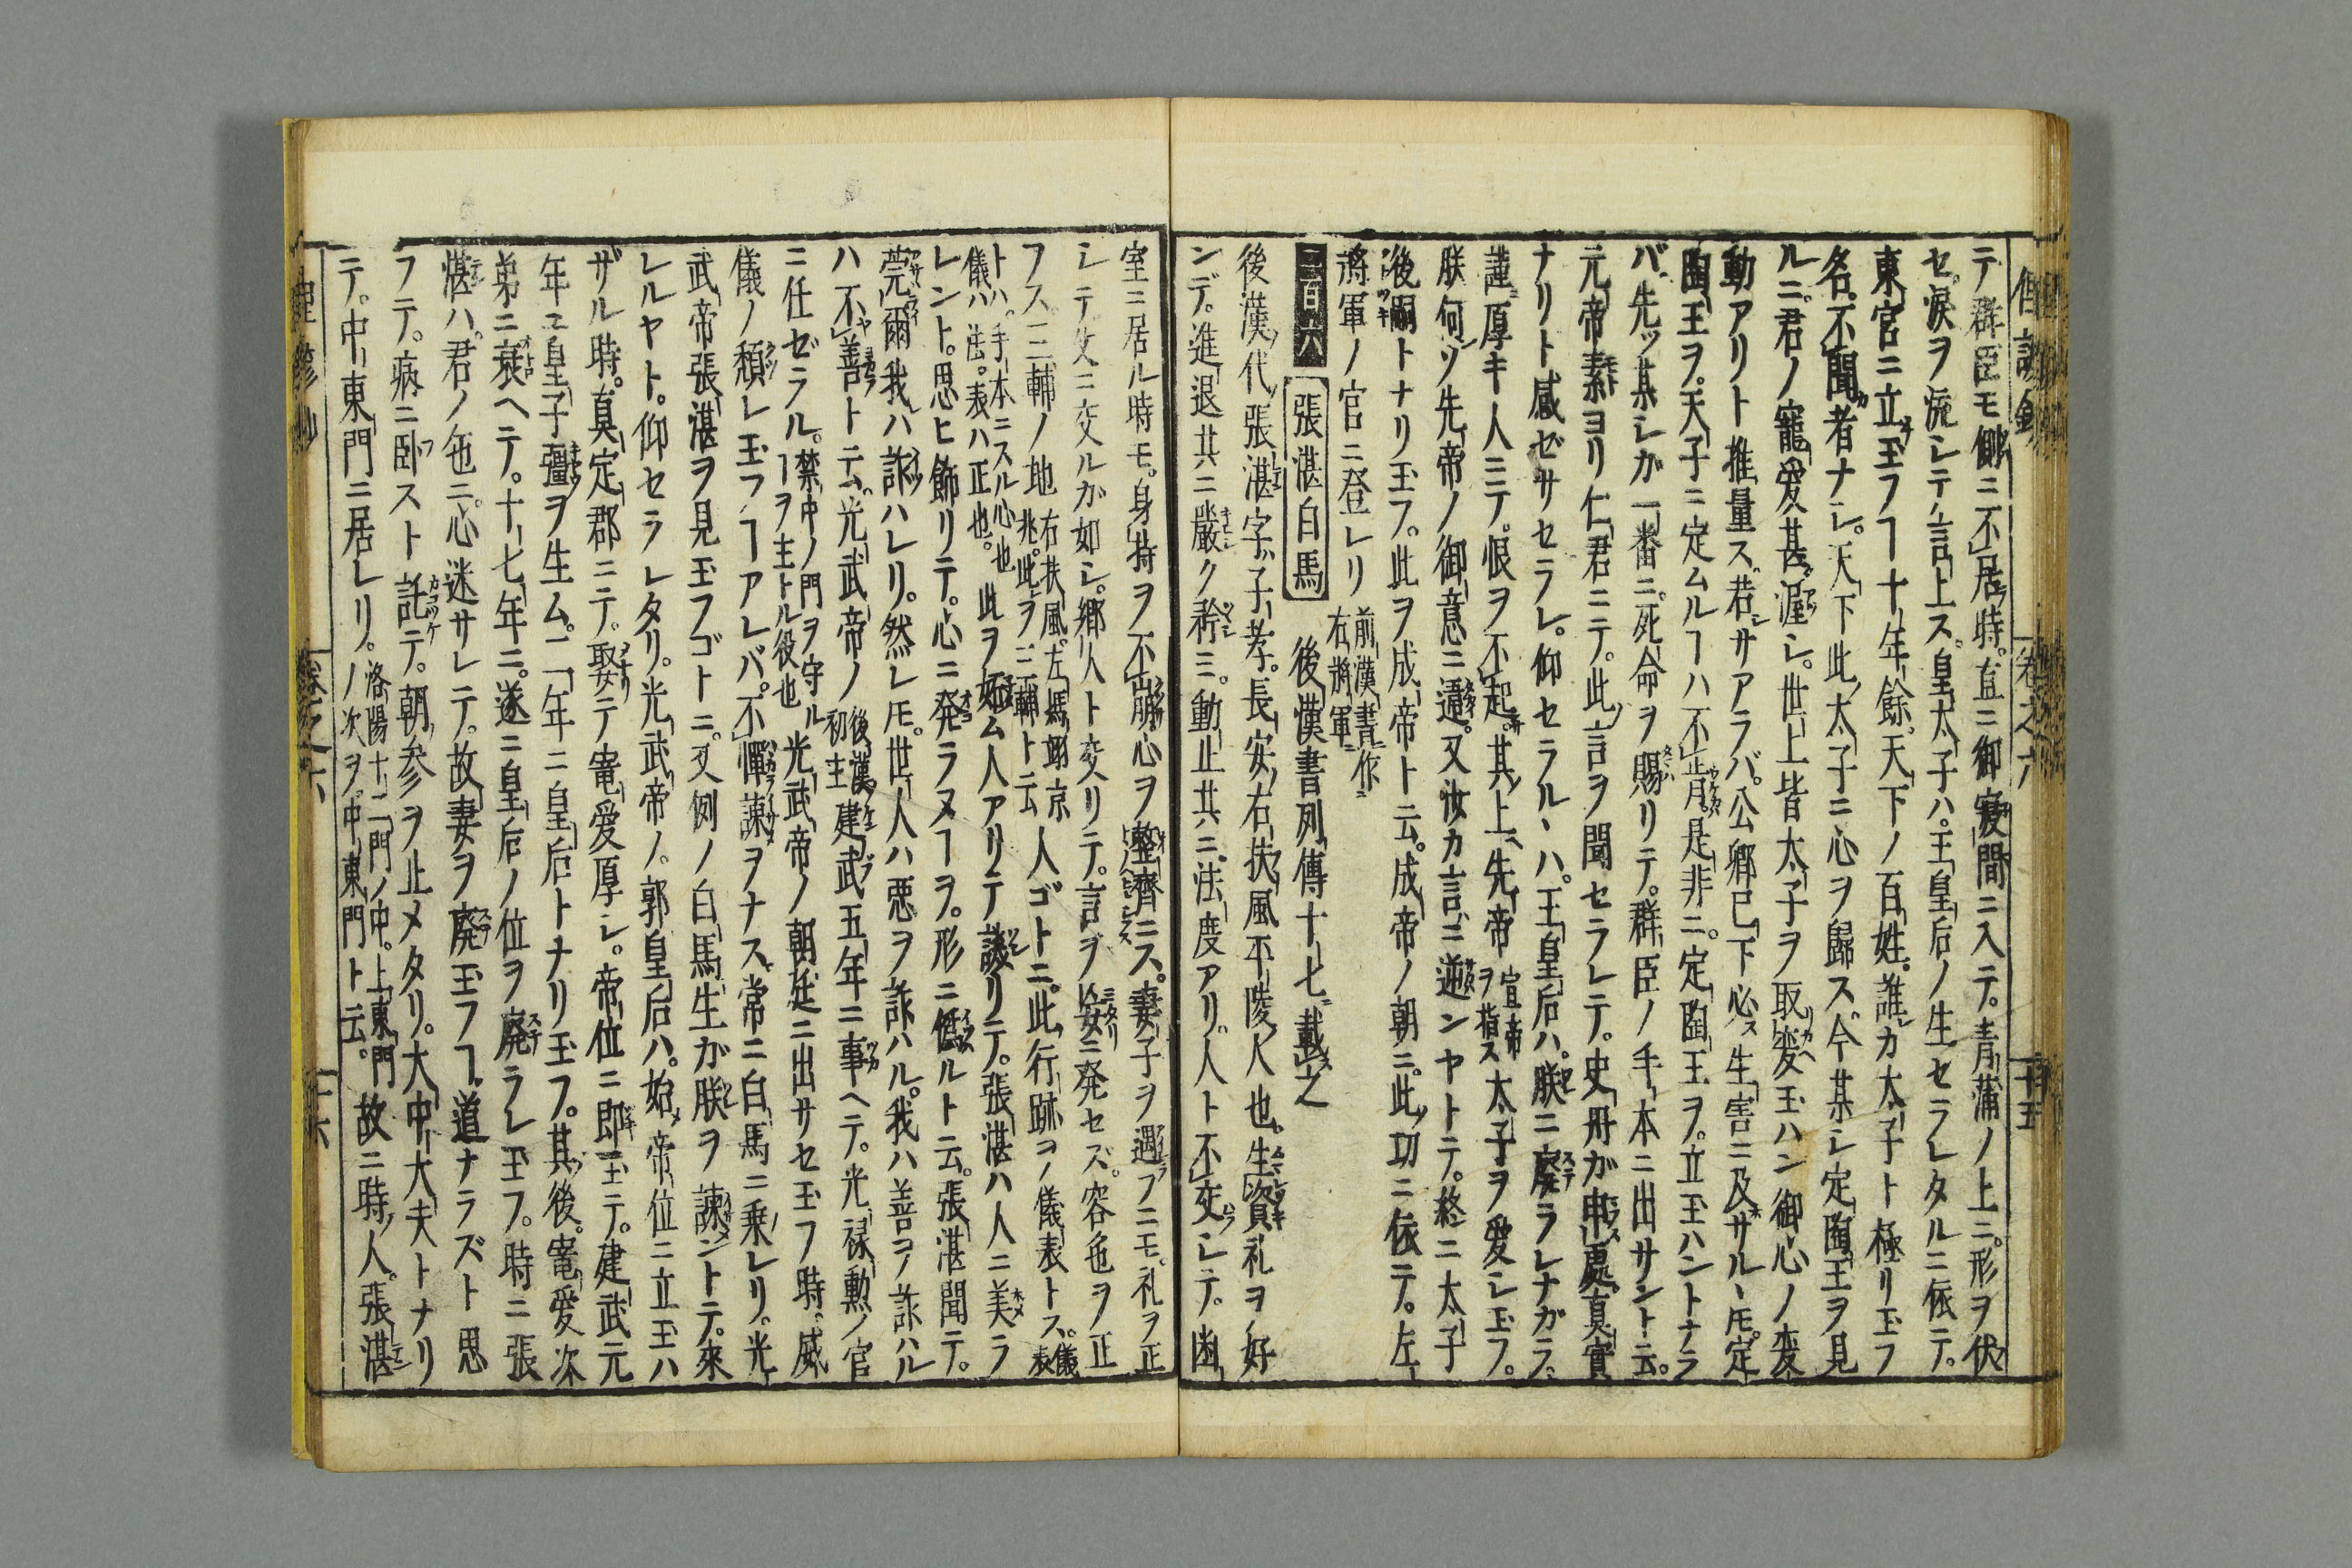 テ群臣モ側ニ不居時。直ニ御寝間ニ入テ。青蒲ノ上ニ。形ヲ伏
セ。涙ヲ流シテ言上ス。皇太子ハ。王皇后ノ生セラレタルニ依テ。
東宮ニ立玉フヿ十年餘。天下ノ百姓。誰カ太子ト極リ玉フ
名。不聞者ナシ。天下此太子ニ心ヲ歸ス。今某シ定陶王ヲ見
ルニ。君ノ寵愛甚渥シ。世上皆太子ヲ取変玉ハン御心ノ変
動アリト推量ス。若サアラバ。公卿已下必ス生害ニ及サルヽ𪜈。定
陶王ヲ。天子ニ定ムルヿハ不肯。是非ニ。定陶王ヲ。立玉ハントナラ
バ。先ッ某シガ一番ニ。死命ヲ賜リテ。群臣ノ手本ニ出サント云。
元帝素ヨリ仁君ニテ。此言ヲ聞セラレテ。史丹ガ申處。真實
ナリト感ゼサセラレ。仰セラルヽハ。王皇后ハ。朕ニ廃ラレナガラ。
謹厚キ人ニテ。恨ヲ不起。其上先帝 宣帝ヲ指ス 太子ヲ愛シ玉フ。
朕何ソ先帝ノ御意ニ違。又汝カ言ニ逆ンヤトテ。終ニ太子
後嗣トナリ玉フ。此ヲ成帝ト云。成帝ノ朝ニ。此功ニ依テ。左
將軍ノ官ニ登レリ 前漢書作右將軍
二百六 張湛白馬 後漢書列傳十七載之
後漢代張湛字子孝。長安右扶風平陵人也。生資礼ヲ好
ンデ。進退共ニ嚴ク矜ニ。動止共ニ法度アリ。人ト不交シテ。幽
室ニ居ル時モ。身持ヲ不崩心ヲ整齊ニス。妻子ヲ遇フニモ。礼ヲ正
シテ父ニ交ルガ如シ。郷人ト交リテ。言ヲ妄ニ発セズ。容色ヲ正
フス三輔ノ地 右扶風。左馮翊京兆。此ヲ三輔ト云 人ゴトニ。此行跡ヲノ儀表トス。儀表
トハ。手本ニスル心也儀ハ法。表ハ正也。 此ヲ妬ム人アリテ譏リテ。張湛ハ人ニ美ラ
レント。思ヒ飾リテ。心ニ発ラヌヿヲ。形ニ低ルト云。張湛聞テ。
莞爾我ハ詐ハレリ。然レ𪜈。世人ハ惡ヲ詐ハル。我ハ善ヲノ詐ハル
ハ不善トテ。光武帝ノ 後漢初主 建武五年ニ事ヘテ。光禄勲ノ官
ニ任ゼラル。 禁中ノ門ヲ守ルヿヲ主トル役也 光武帝ノ朝廷ニ出サセ玉フ時。威
儀ノ頽レ玉フヿアレバ。不憚諫ヲナス。常ニ白馬ニ乗レリ。光
武帝張湛ヲ見玉フゴトニ。又例ノ白馬生ガ朕ヲ諫ントテ。來
レルヤト。仰セラレタリ。光武帝ノ。郭皇后ハ。始帝位ニ立玉ハ
ザル時。真定郡ニテ。娶テ寵愛厚シ。帝位ニ即玉テ。建武元
年ニ皇子彊ヲ生ム。二年ニ皇后トナリ玉フ。其後。寵愛次
弟ニ衰ヘテ。十七年ニ。遂ニ皇后ノ位ヲ廃ラレ玉フ。時ニ張
湛ハ。君ノ色ニ。心迷サレテ。故妻ヲ廃玉フヿ。道ナラズト思
フテ。病ニ卧ストノ託テ。朝参ヲ止メタリ。大中大夫トナリ
テ。中東門ニ居レリ。 洛陽十二門ノ中。上東門ノ次ヲ。中東門ト云。 故ニ時人。張湛